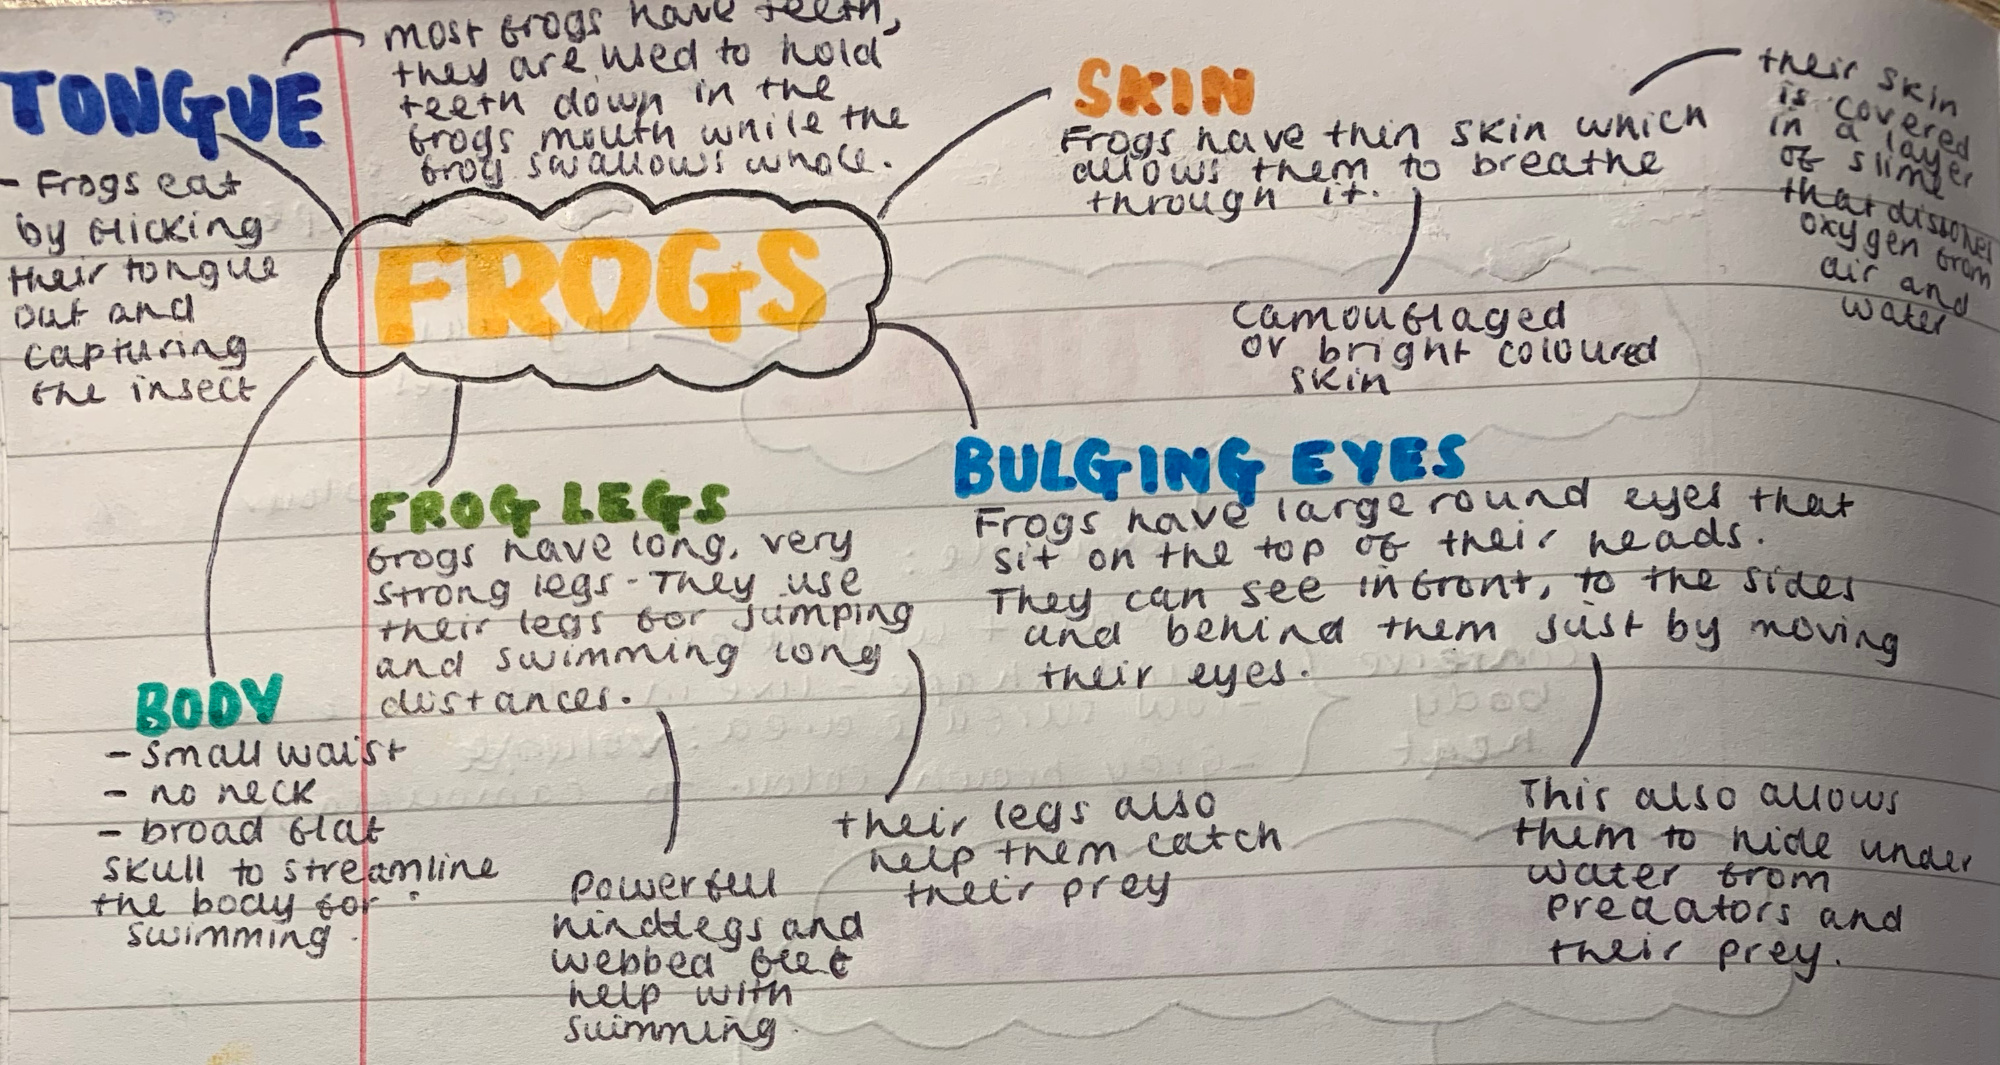 TONGUE
most frogs have teeth,
they are used to hold
teeth down in the
frogs mouth while the
frog swallows whole.
- Frogs eat
by flicking
their tongue
out and
capturing
the insect
FROGS
SKIN
Frogs have thin skin which
allows them to breathe
through it.
their skin
is covered
in a layer
of slime
that dissolves
oxygen from
air and
water
camouflaged
or bright coloured
skin
BULGING EYES
Frogs have large round eyes that
sit on the top of their heads.
They can see infront, to the sides
and behind them just by moving
their eyes.
This also allows
them to hide under
water from
predators and
their prey.
FROG LEGS
frogs have long, very
strong legs - They use
their legs for jumping
and swimming long
distances.
their legs also
help them catch
their prey
Powerfull
hindlegs and
webbed feet
help with
swimming.
BODY
- small waist
- no neck
- broad flat
skull to streamline
the body for
swimming.